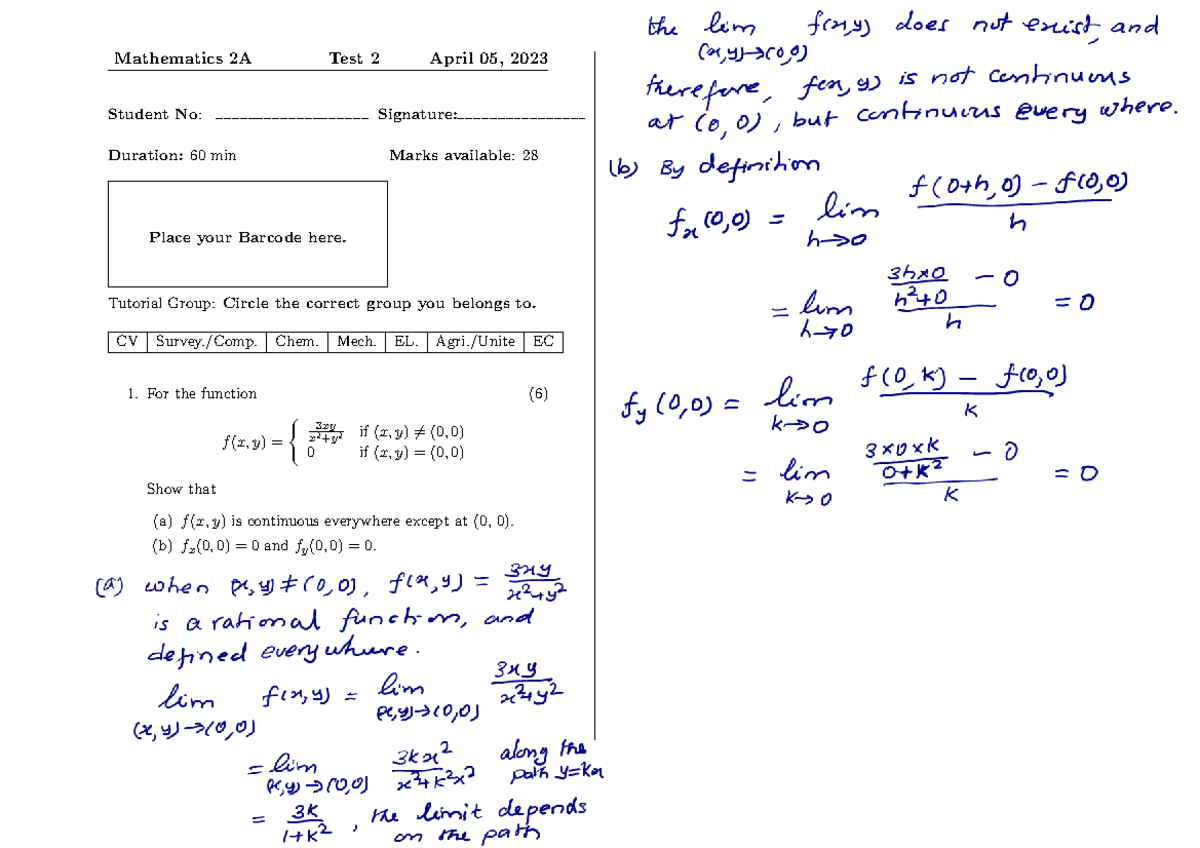 Mathematics 2A Test 2 April 05, 2023
Student No: __________________ Signature:________________
Duration: 60 min Marks available: 28
Place your Barcode here.
Tutorial Group: Circle the correct group you belongs to.
CV | Survey./Comp. | Chem. | Mech. | EL. | Agri./Unite | EC
1. For the function (6)
f(x, y) = { 3xy/(x²+y²) if (x, y) ≠ (0, 0)
0 if (x, y) = (0, 0)
Show that
(a) f(x, y) is continuous everywhere except at (0, 0).
(b) fx(0, 0) = 0 and fy(0, 0) = 0.
(a) when (x,y)≠(0,0), f(x,y) = 3xy/(x²+y²)
is a rational function, and
defined everywhere.
lim (x,y)→(0,0) f(x,y) = lim (x,y)→(0,0) 3xy/(x²+y²)
= lim (x,y)→(0,0) 3kx²/(x²+k²x²) along the path y=kx
= 3k/(1+k²), the limit depends
on the path
the lim (x,y)→(0,0) f(x,y) does not exist, and
therefore, f(x,y) is not continuous
at (0,0), but continuous every where.
(b) By definition
fx(0,0) = lim h→0 (f(0+h,0) – f(0,0))/h
= lim h→0 (3h×0/(h²+0) – 0)/h = 0
fy(0,0) = lim k→0 (f(0,k) – f(0,0))/k
= lim k→0 (3×0×k/(0+k²) – 0)/k = 0